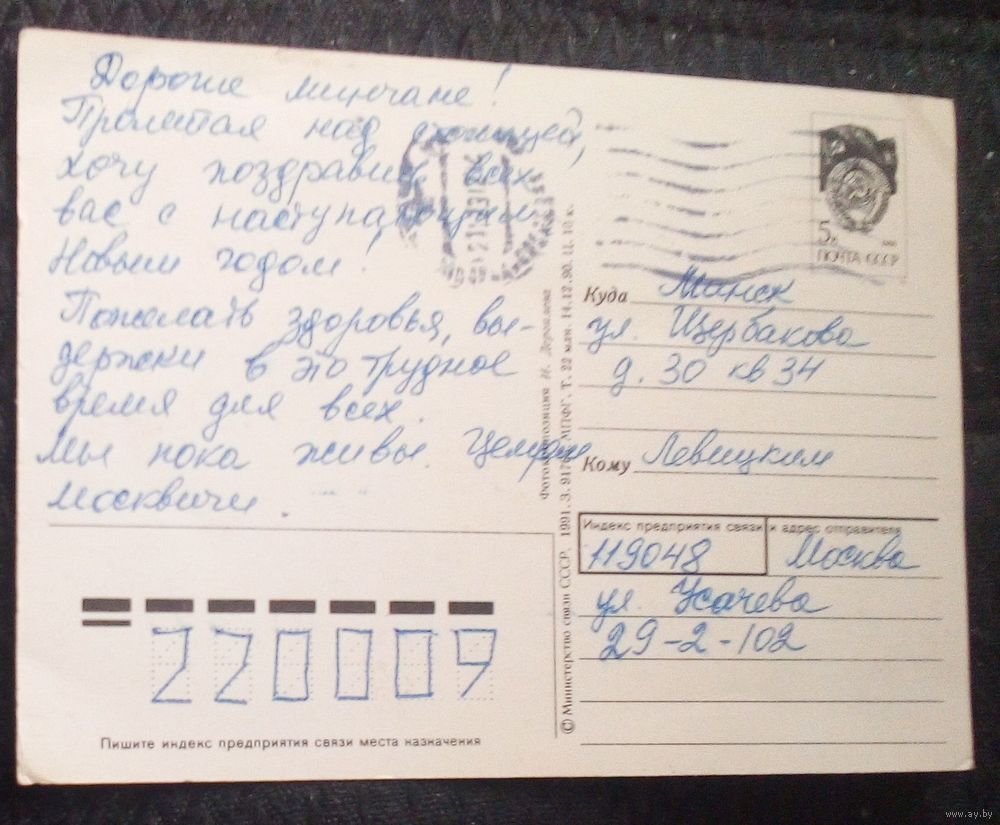 Дорогие минчане!
Пролетая над столицей,
хочу поздравить всех
вас с наступающим
Новым годом!
Пожелать здоровья, вы-
держки в это трудное
время для всех.
Мы пока живы. Целуем
москвичи.
5к
ПОЧТА СССР
Куда Минск
ул. Щербакова
д. 30 кв 34
Кому Левицким
Индекс предприятия связи и адрес отправителя
119048 Москва
ул. Усачева
29-2-102
220009
Пишите индекс предприятия связи места назначения
© Министерство связи СССР. 1991. З. 9176. МПФГ. Т. 22 млн. 14.12.90. Ц. 10 к.
Фотокомпозиция И. Дергилева
www.ay.by